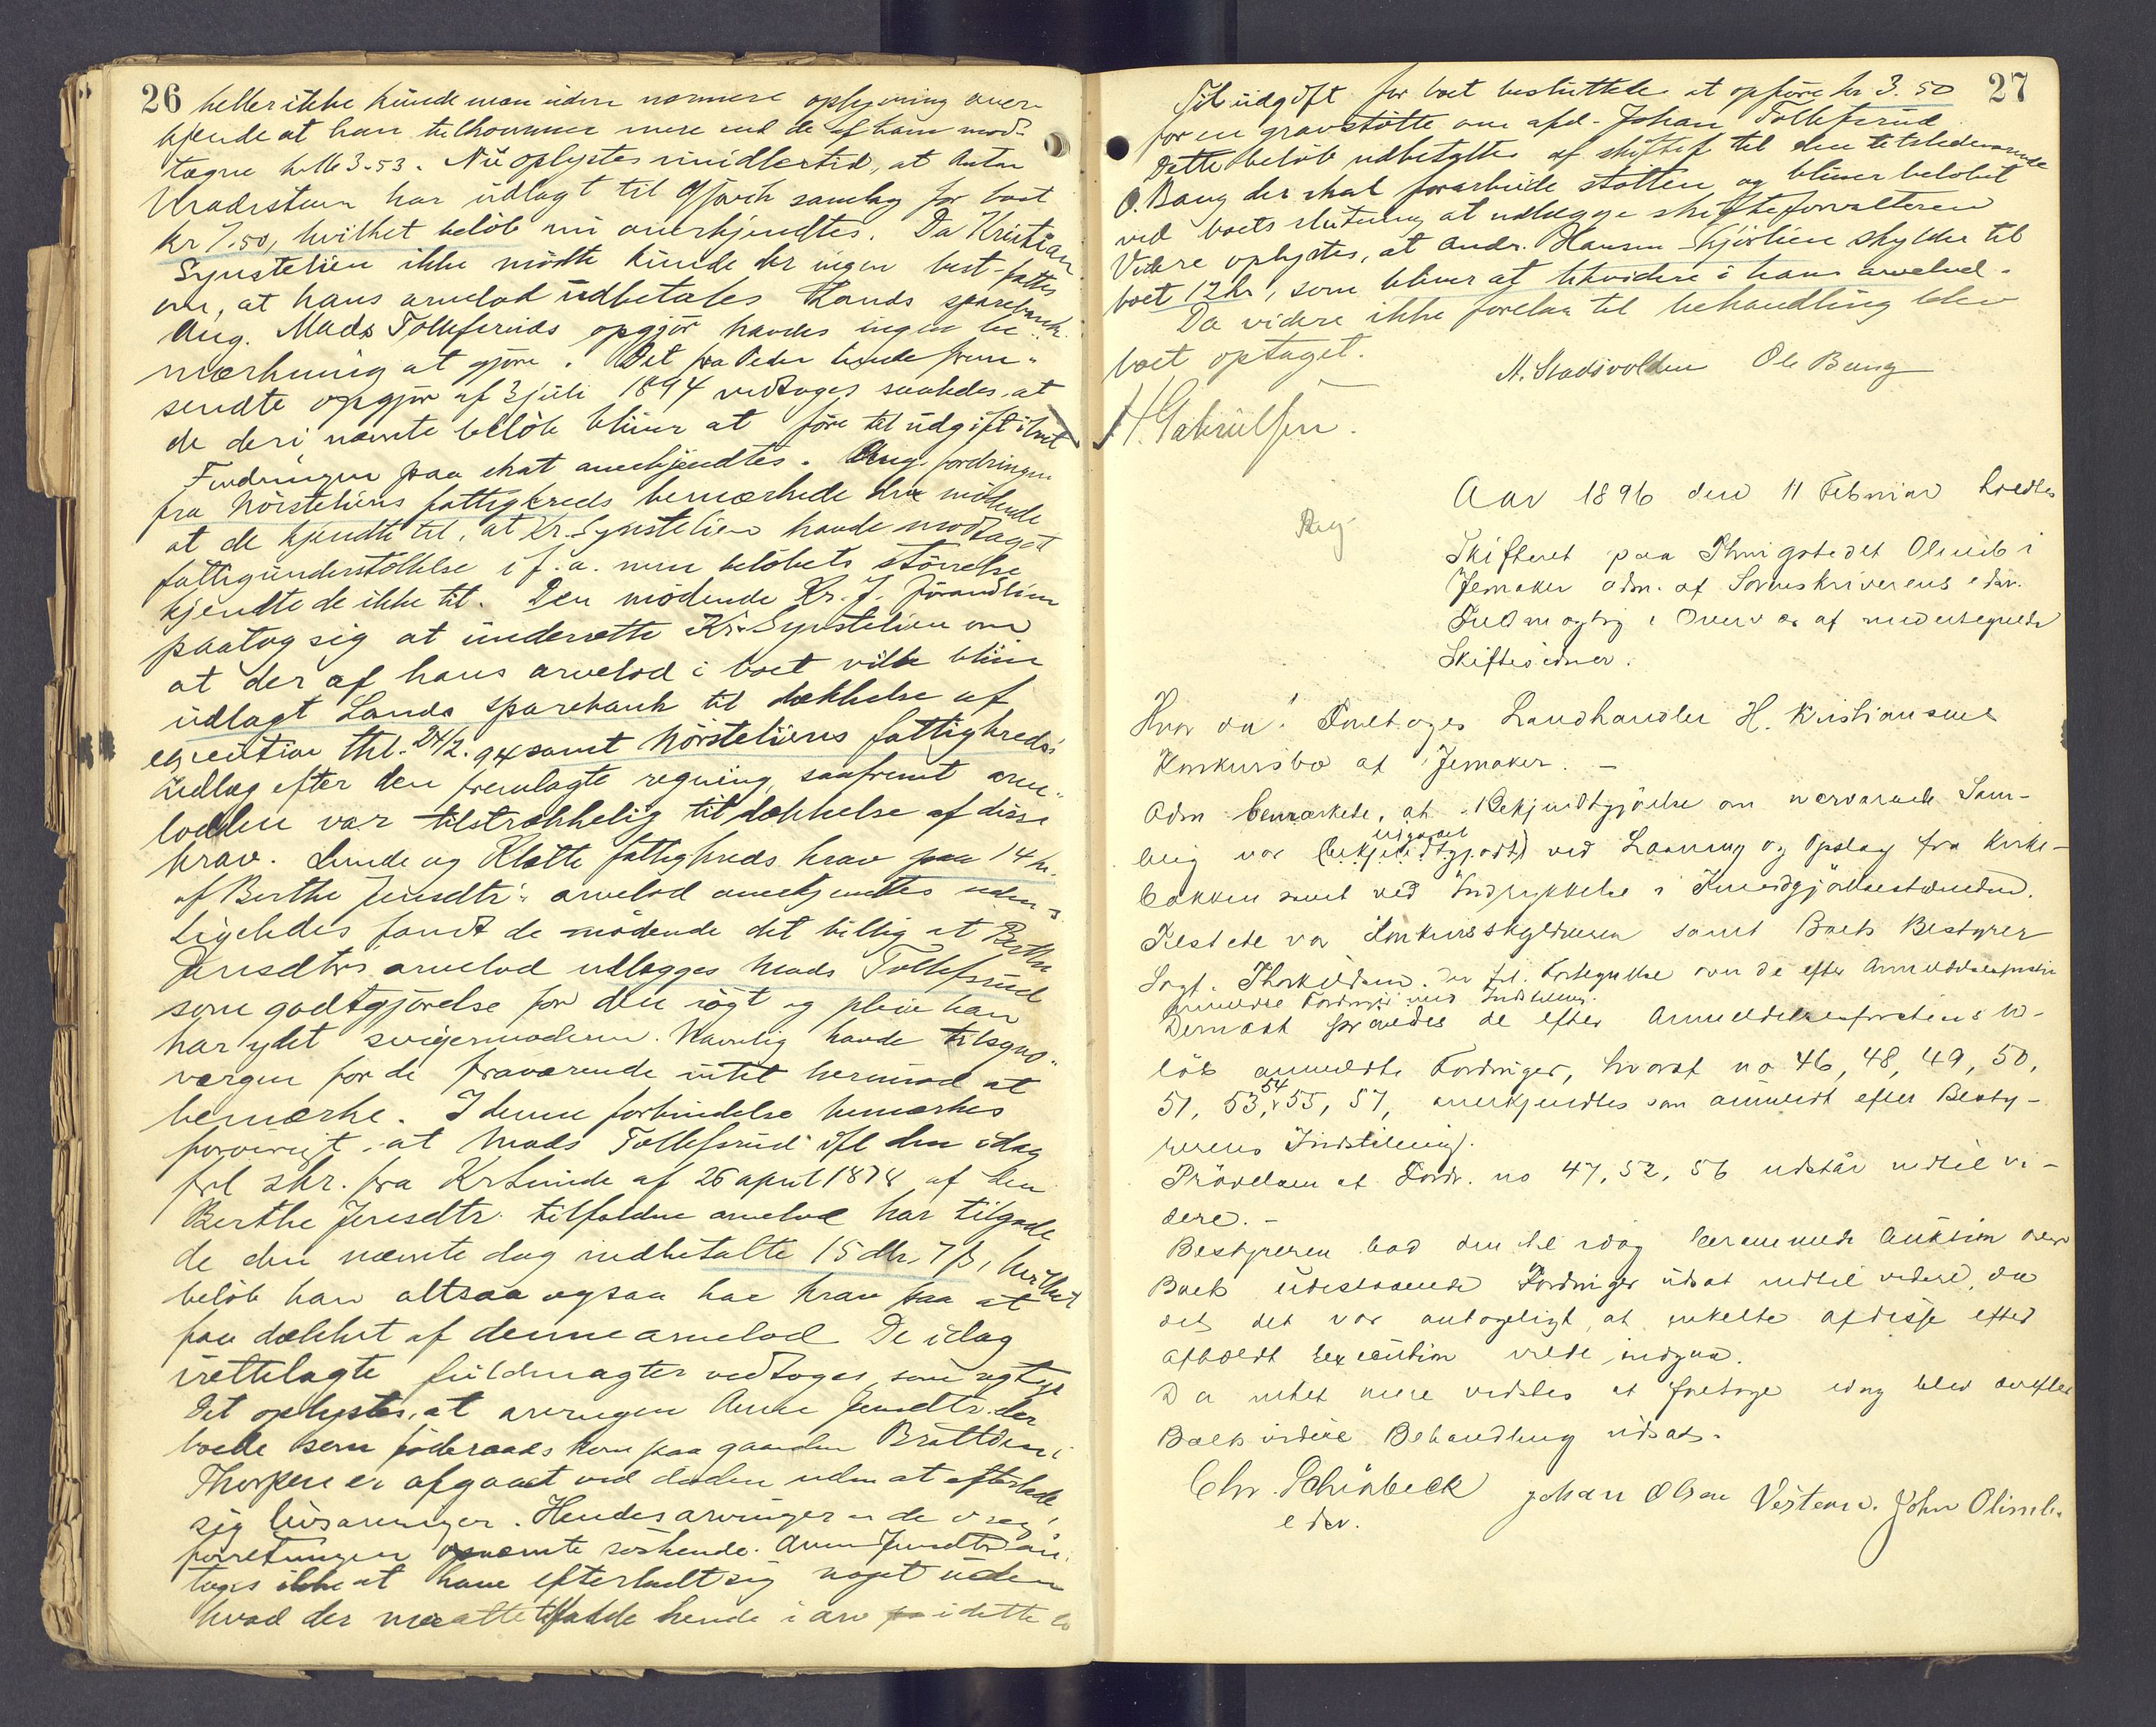 26
heller ikke kunde man uden nærmere oplysning aner-
kjende at han tilkommer mere end de af ham mod-
tagne kr 3.53. Nu oplystes imidlertid, at Anton
har udlagt til Gjøvik samlag for boet
kr 7.50, hvilket beløb nu anerkjendtes. Da Kristian
Synstelien ikke mødte kunde der ingen best. fattes
om, at hans arvelod udbetales Lands sparebank.
Ang. Mads Tollefsruds opgjør havdes ingen be-
mærkning at gjøre. Det fra Peder Lunde frem-
sendte opgjør af 3 juli 1894 vedtoges saaledes, at
de deri nævnte beløb bliver at føre til udgift i boet
Fordringen paa skat anerkjendtes. Ang. fordringen
fra Nørsteliens fattigkreds bemærkede de mødende
at de kjendte til, at Kr. Synstelien havde modtaget
fattigunderstøttelse i f. a. men beløbets størrelse
kjendte de ikke til. Den mødende Kr. J.
paatog sig at underrette Kr. Synstelien om
at der af hans arvelod i boet vilde blive
udlagt Lands sparebank til dækkelse af
execution thl. 24/2. 94 samt Nørsteliens fattigkreds's
udlæg efter den fremlagte regning, saafremt arve-
lodden var tilstrækkelig til dækkelse af disse
krav. Lunde og Klætte fattigkreds krav paa 14 kr.
af Berthe Jensdtr's arvelod anerkjendtes uden
Ligeledes fandt de mødende det billig at Berthe
Jensdtrs arvelod udlægges Mads Tollefsrud
som godtgjørelse for den røgt og pleie han
har ydet svigermoderen. Navnlig havde tilsyns-
værgen for de fraværende intet herimod at
bemærke. I denne forbindelse bemærkes
forøvrigt, at Mads Tollefsrud ifl den idag
frl skr. fra Kr Lunde af 26 april 1878 af den
Berthe Jensdtr. tilfaldne arvelod har tilgode
de den nævnte dag indbetalte 15 dlr. 7 β, hvilket
beløb han altsaa ogsaa har krav paa at
faa dækket af denne arvelod De idag
irettelagte fuldmagter vedtoges som agtige
Det oplystes, at arvingen Anne Jensdtr. der
boede som føderaads kone paa gaarden i
Thorpen er afgaaet ved døden uden at efterlade
sig livsarvinger. Hendes arvinger er de i reg.
forretningen opnævnte søskende. Anne Jensdtr an-
tages ikke at have efterladt sig noget uden
hvad der maatte tilfalde hende i arv i dette bo
27
Til udgift for boet besluttedes at opføre kr 3.50
for en gravstøtte om afd. Johan Tollefsrud
Dette beløb udbetaltes af skiftef til den tilstedeværende
O. Bang der skal forarbeide støtten og bliver beløbet
ved boets slutning at udlægge skifteforvalteren
Videre oplystes, at Andr. Hansen Skjørlien skylder til
boet 12 kr, som bliver at likvidere i hans arvelod.
Da videre ikke forelaa til behandling blev
boet optaget.
N. Stadsvolden Ole Bang
H. Gabrielsen.
Aar 1896 den 11 Februar holdtes
Skifteret paa Thingstedet Olimb i
Jevnaker adm. af Sorenskriverens edsv.
Fuldmægtig i Overvær af undertegnede
Skiftevidner.
Hvor da! Foretoges Landhandler H. Kristiansens
Konkursbo af Jevnaker. —
Adm bemærkede, at Bekjendtgjørelse om nærværende Sam-
udgaaet
ling var (bekjendtgjort) ved Læsning og Opslag fra Kirke-
bakken samt ved Indrykkelse i Kundgjørelsestidenden.
Tilstede var Konkursskyldneren samt Boets Bestyrer
Sagf. Thorkildsen. Der frl. Fortegnelse over de efter Anmeldelsesfristen
anmeldte Fordringer med Indstilling.
Dernæst prøvedes de efter Anmeldelsesfristens Ud-
løb anmeldte Fordringer, hvoraf no 46, 48, 49, 50,
51, 53, 54, 55, 57, anerkjendtes som anmeldt efter Besty-
rerens Indstilling.
Prøvelsen af Fordr. no 47, 52, 56 udstår indtil vi-
dere. —
Bestyreren bad den til idag berammede Auktion over
Boets udestaaende Fordringer udsat indtil videre, da
det var antageligt, at enkelte af disse efter
afholdt Execution vilde indgaa.
Da intet mere vidstes at foretage idag blev derefter
Boets videre Behandling udsat.
Chr. Schinbeck Johan Olsen Vestern. John Olimb.
edsv.